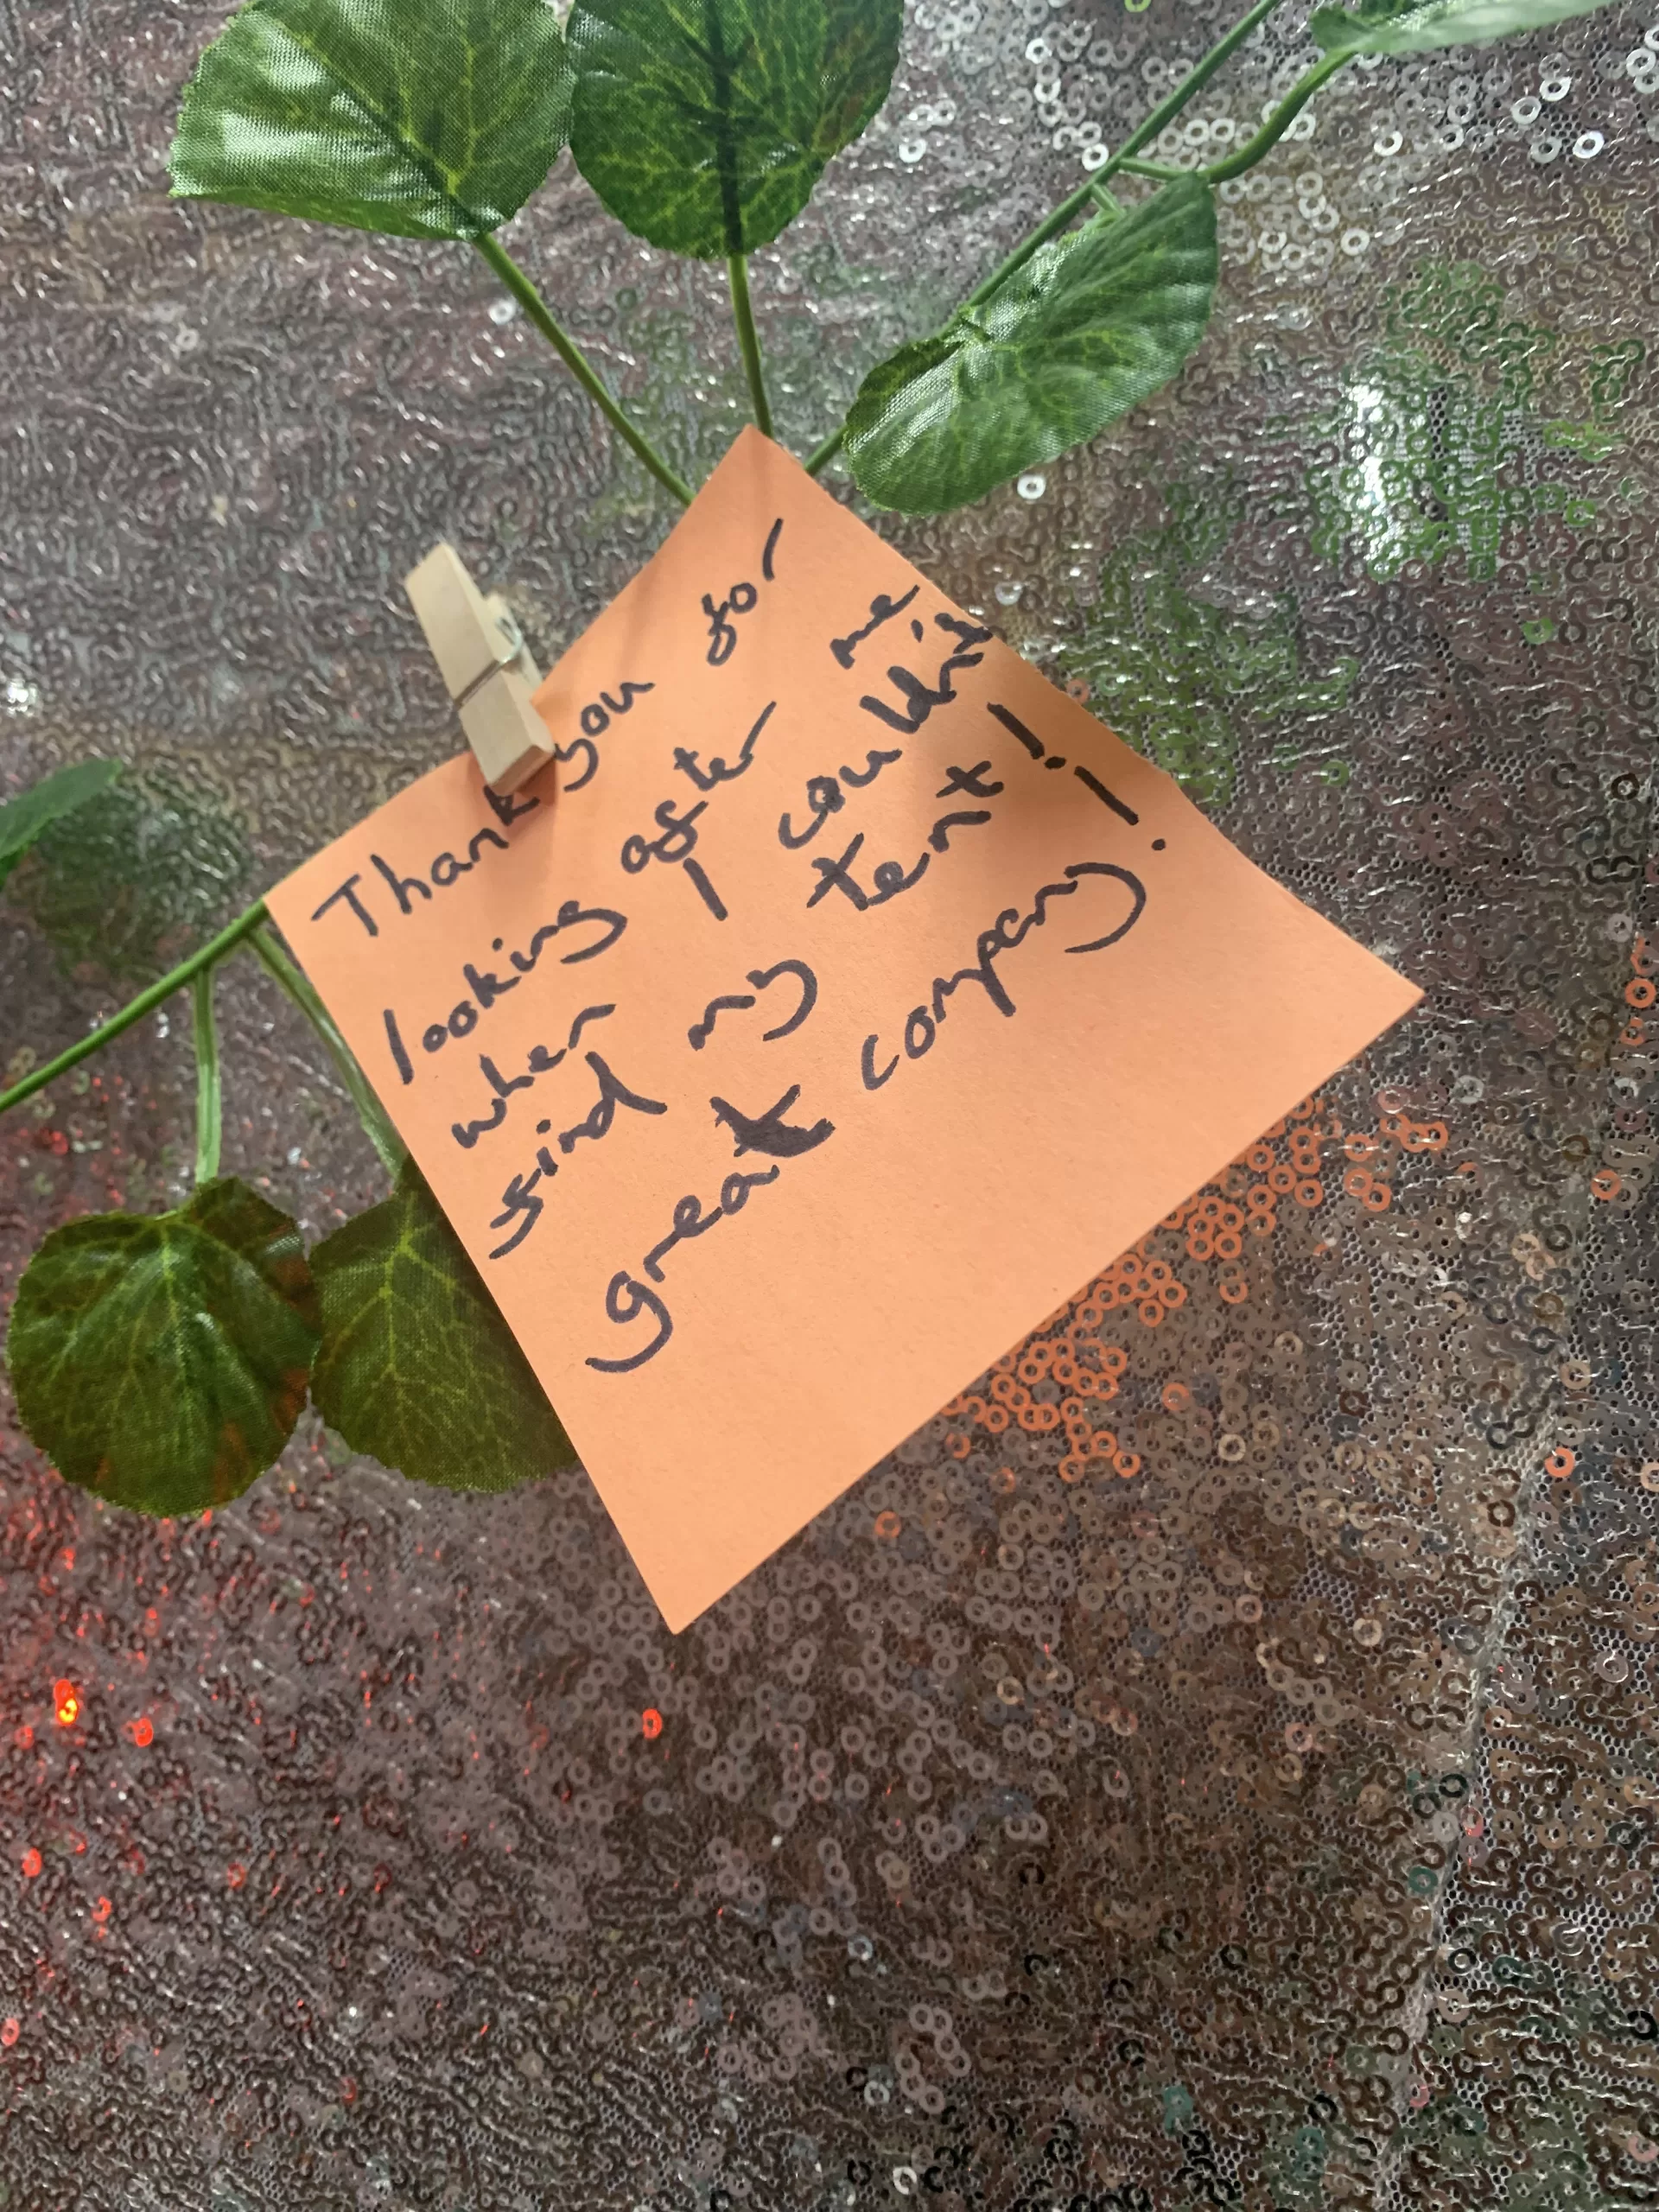 Thank you for
looking after me
when I couldn't
find my tent!!
great company!